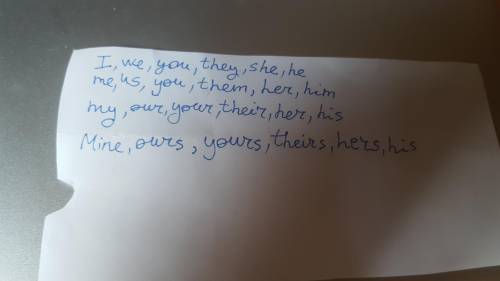 I, we, you, they, she, he
me, us, you, them, her, him
my, our, your, their, her, his
Mine, ours, yours, theirs, hers, his